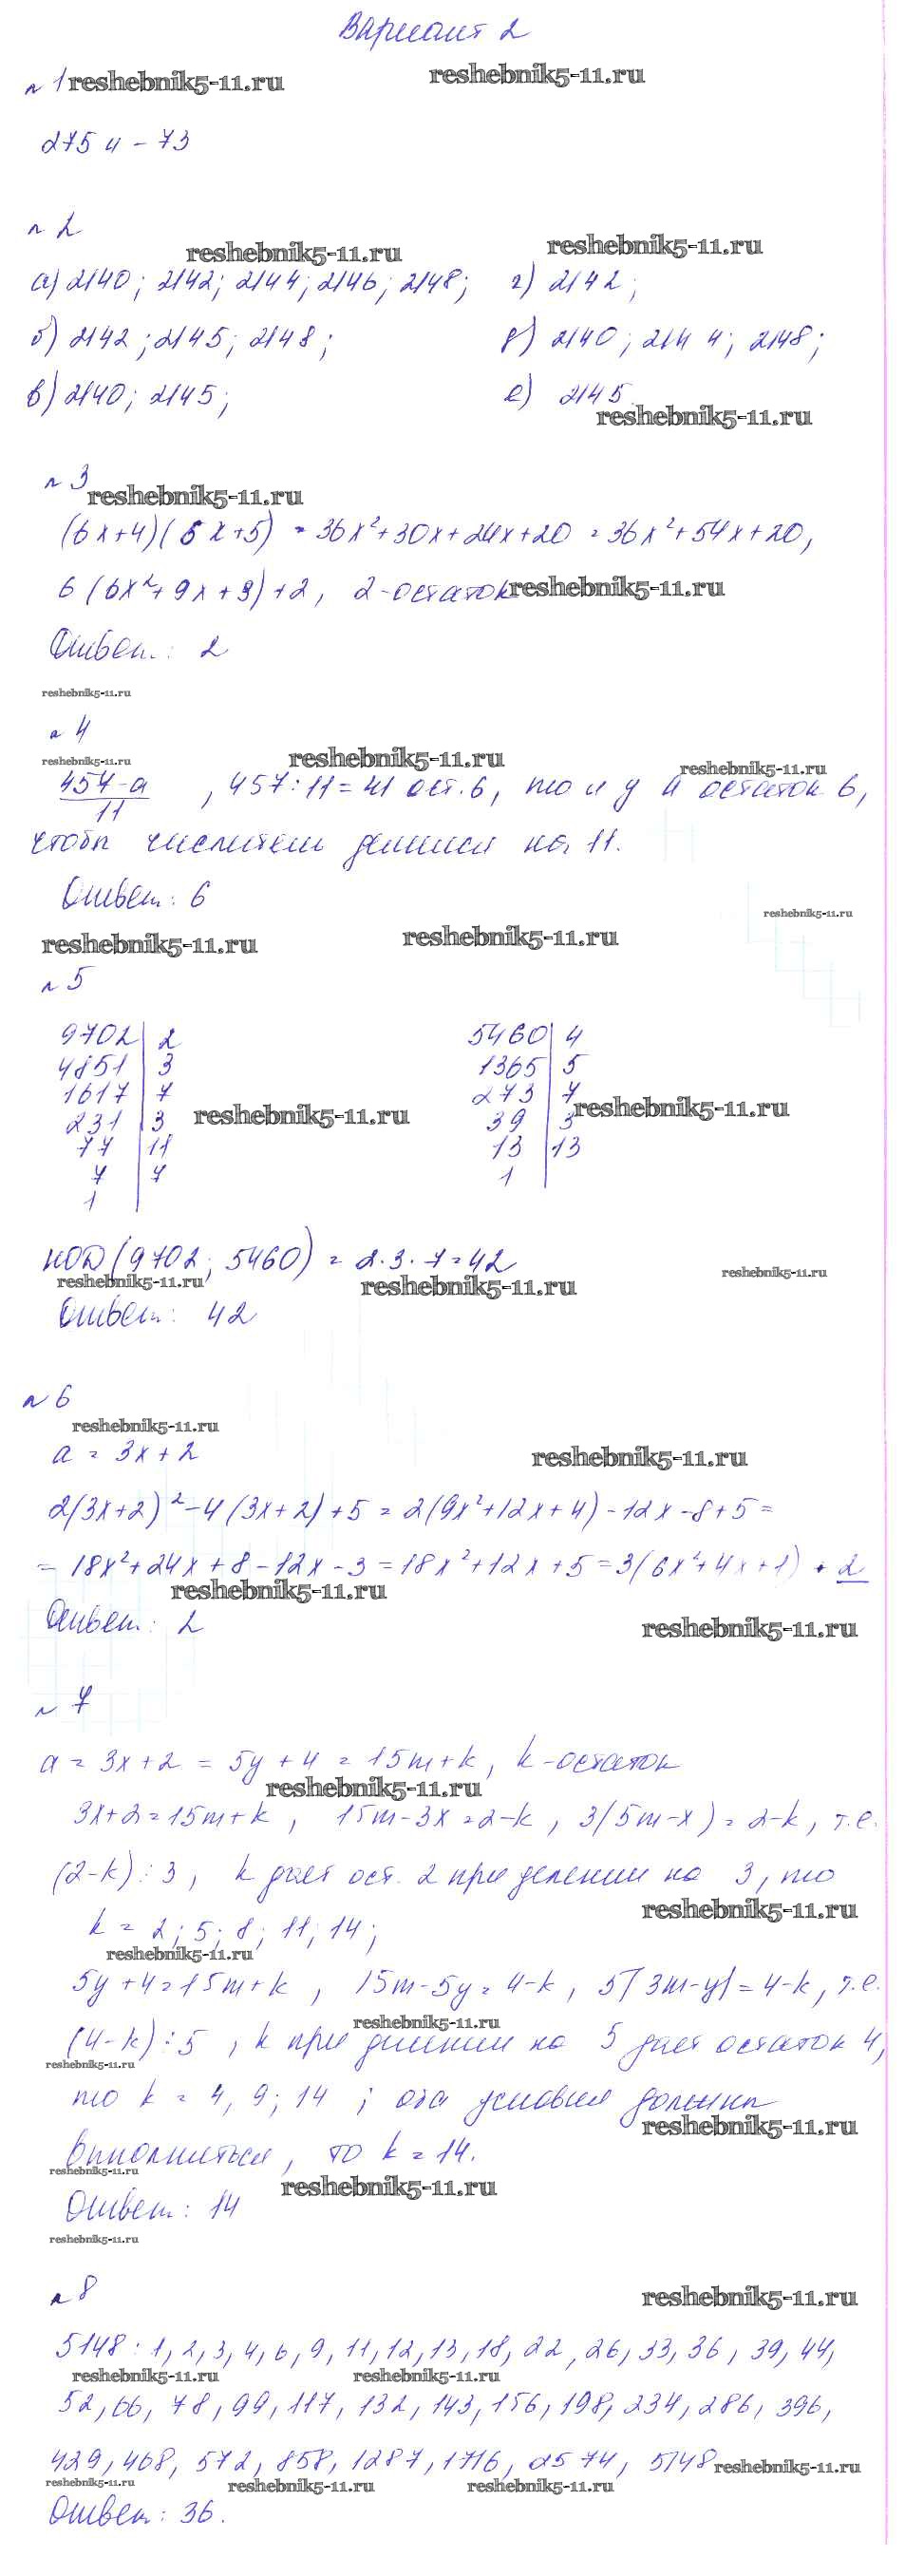 Вариант 2
№ 1 reshebnik5-11.ru reshebnik5-11.ru
275 и - 73
№ 2
reshebnik5-11.ru reshebnik5-11.ru
а) 2140; 2142; 2144; 2146; 2148; г) 2142;
б) 2142; 2145; 2148; д) 2140; 2144; 2148;
в) 2140; 2145; е) 2145
reshebnik5-11.ru
№ 3
reshebnik5-11.ru
(6x+4)(6x+5) = 36x²+30x+24x+20 = 36x²+54x+20,
6(6x²+9x+3)+2, 2-остаток reshebnik5-11.ru
Ответ: 2
reshebnik5-11.ru
№ 4
reshebnik5-11.ru reshebnik5-11.ru
reshebnik5-11.ru
457-a / 11, 457:11=41 ост.6, то и у a остаток 6,
чтобы числитель делился на 11.
Ответ: 6
reshebnik5-11.ru
reshebnik5-11.ru reshebnik5-11.ru
№ 5
9702 | 2 5460 | 4
4851 | 3 1365 | 5
1617 | 7 273 | 7
231 | 3 reshebnik5-11.ru 39 | 3 reshebnik5-11.ru
77 | 11 13 | 13
7 | 7 1
1
НОД(9702; 5460) = 2·3·7=42
reshebnik5-11.ru reshebnik5-11.ru reshebnik5-11.ru
Ответ: 42
№ 6
reshebnik5-11.ru
a = 3x+2 reshebnik5-11.ru
2(3x+2)²-4(3x+2)+5 = 2(9x²+12x+4)-12x-8+5=
= 18x²+24x+8-12x-3=18x²+12x+5=3(6x²+4x+1)+2
reshebnik5-11.ru
Ответ: 2 reshebnik5-11.ru
№ 7
a = 3x+2 = 5y+4 = 15m+k, k-остаток
reshebnik5-11.ru
3x+2=15m+k, 15m-3x=2-k, 3(5m-x)=2-k, т.е.
(2-k)⋮3, k дает ост. 2 при делении на 3, то
reshebnik5-11.ru
k = 2; 5; 8; 11; 14;
reshebnik5-11.ru
5y+4=15m+k, 15m-5y=4-k, 5(3m-y)=4-k, т.е.
reshebnik5-11.ru
(4-k)⋮5, k при делении на 5 дает остаток 4,
reshebnik5-11.ru
то k = 4, 9; 14; оба условия должны
reshebnik5-11.ru
выполниться, то k=14.
reshebnik5-11.ru reshebnik5-11.ru
Ответ: 14
reshebnik5-11.ru
№ 8 reshebnik5-11.ru
5148: 1, 2, 3, 4, 6, 9, 11, 12, 13, 18, 22, 26, 33, 36, 39, 44,
reshebnik5-11.ru reshebnik5-11.ru
52, 66, 78, 99, 117, 132, 143, 156, 198, 234, 286, 396,
429, 468, 572, 858, 1287, 1716, 2574, 5148 reshebnik5-11.ru
reshebnik5-11.ru reshebnik5-11.ru reshebnik5-11.ru
Ответ: 36.